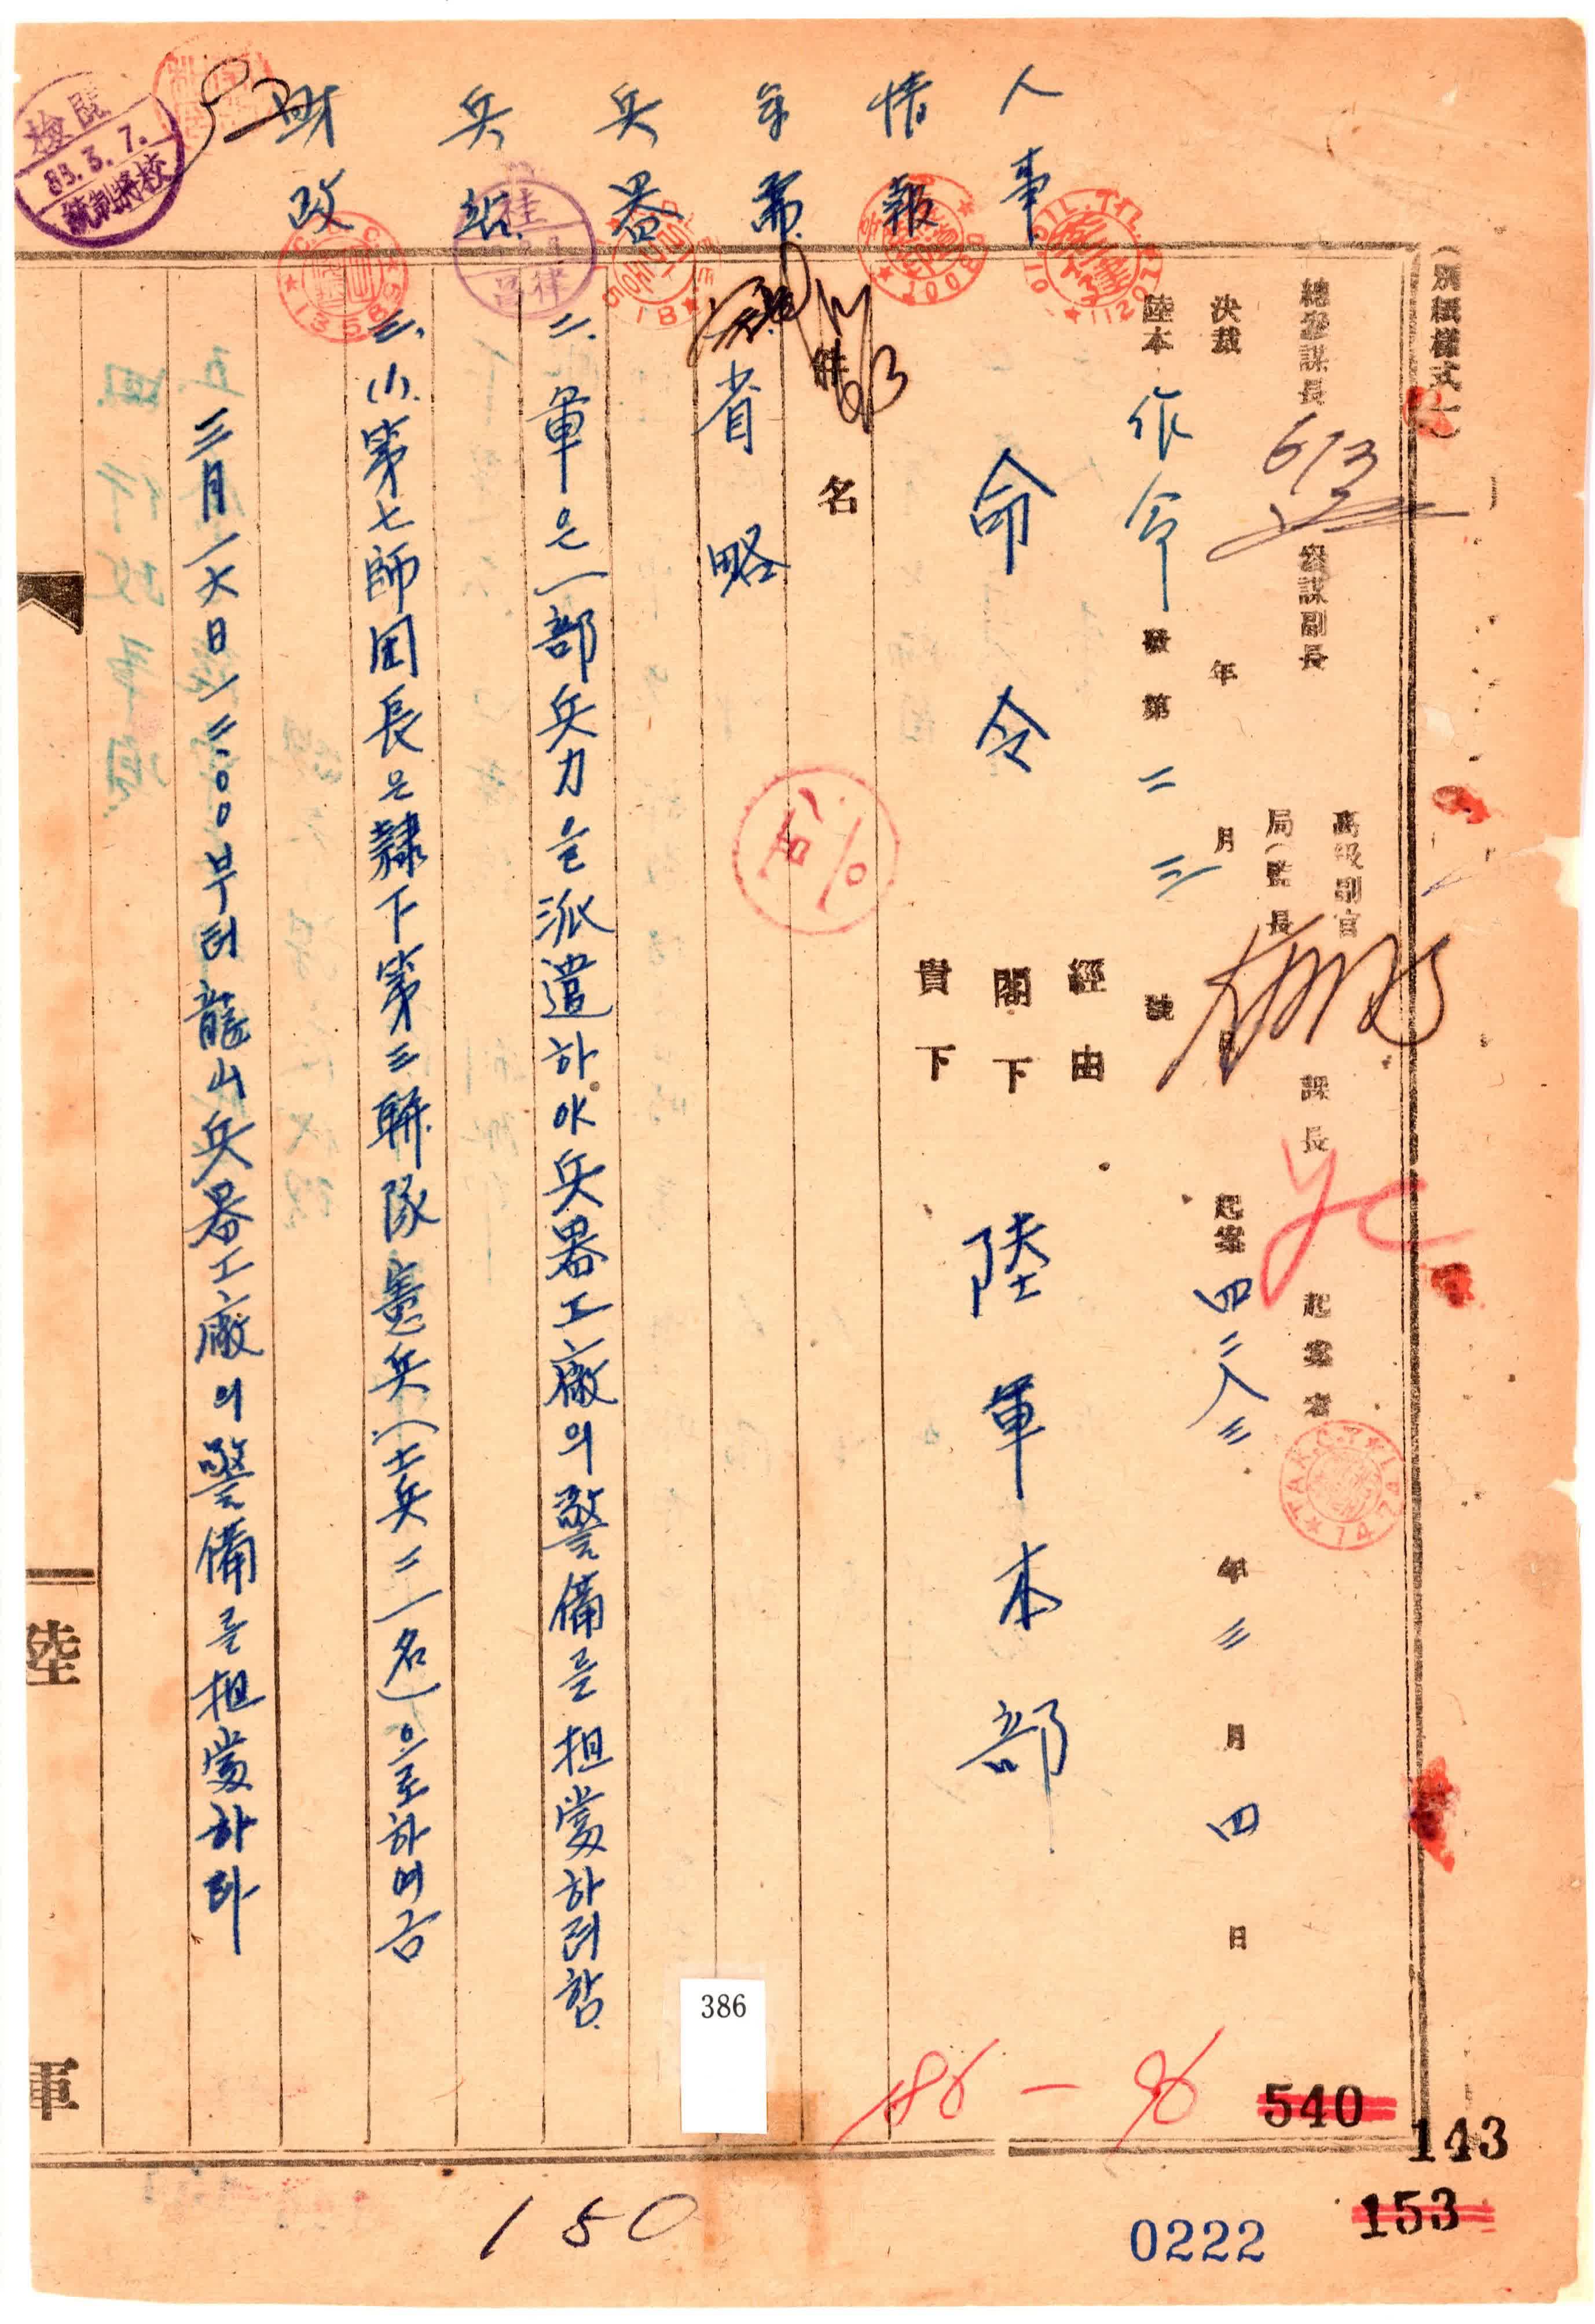 (別紙樣式一)
總參謀長 參謀副長 高級副官 局(監)長 課長 起案者
決裁 年 月 起案 四二八三年三月四日
陸本 作令 發第 二三 號
經由
命令 閣下 陸軍本部
貴下
件名
省略
二. 軍은 一部兵力을 派遣하야 兵器工廠의 警備를 担當하려함.
三. (1). 第七師団長은 隷下 第三聯隊 憲兵(士兵二一名)으로하여금
三月一六日 一三:00부터 龍山兵器工廠의 警備를 担當하라
人事
情報
軍需
兵器
兵站
財政
檢閱
83.3.7.
統制將校
613
386
86 - 96
540
143
153
0222
150
陸軍